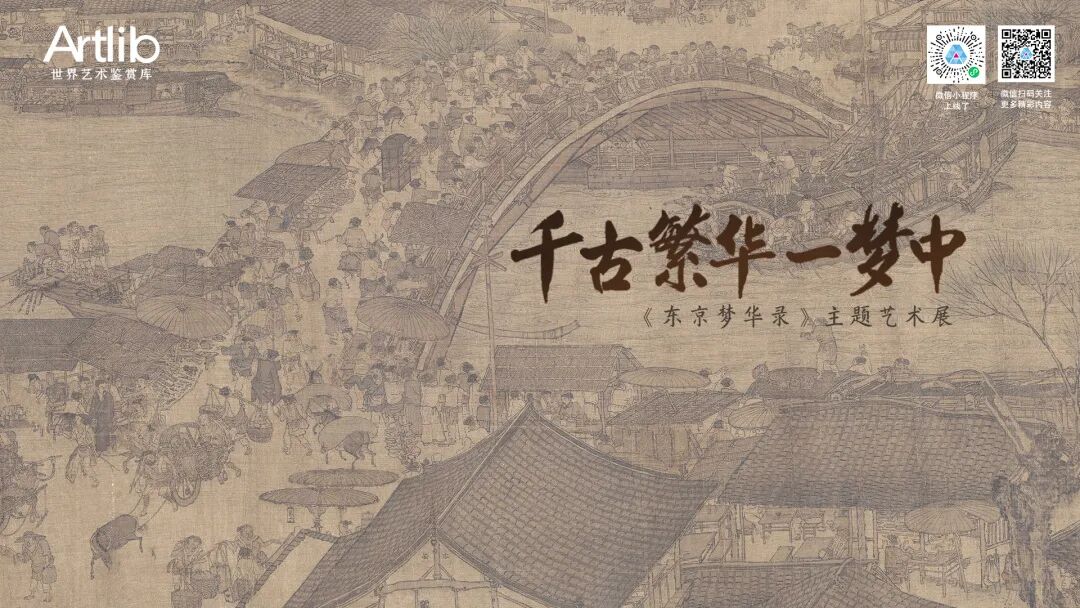 Artlib
世界艺术鉴赏库
微信小程序
上线了
微信扫码关注
更多精彩内容
千古繁华一梦中
《东京梦华录》主题艺术展